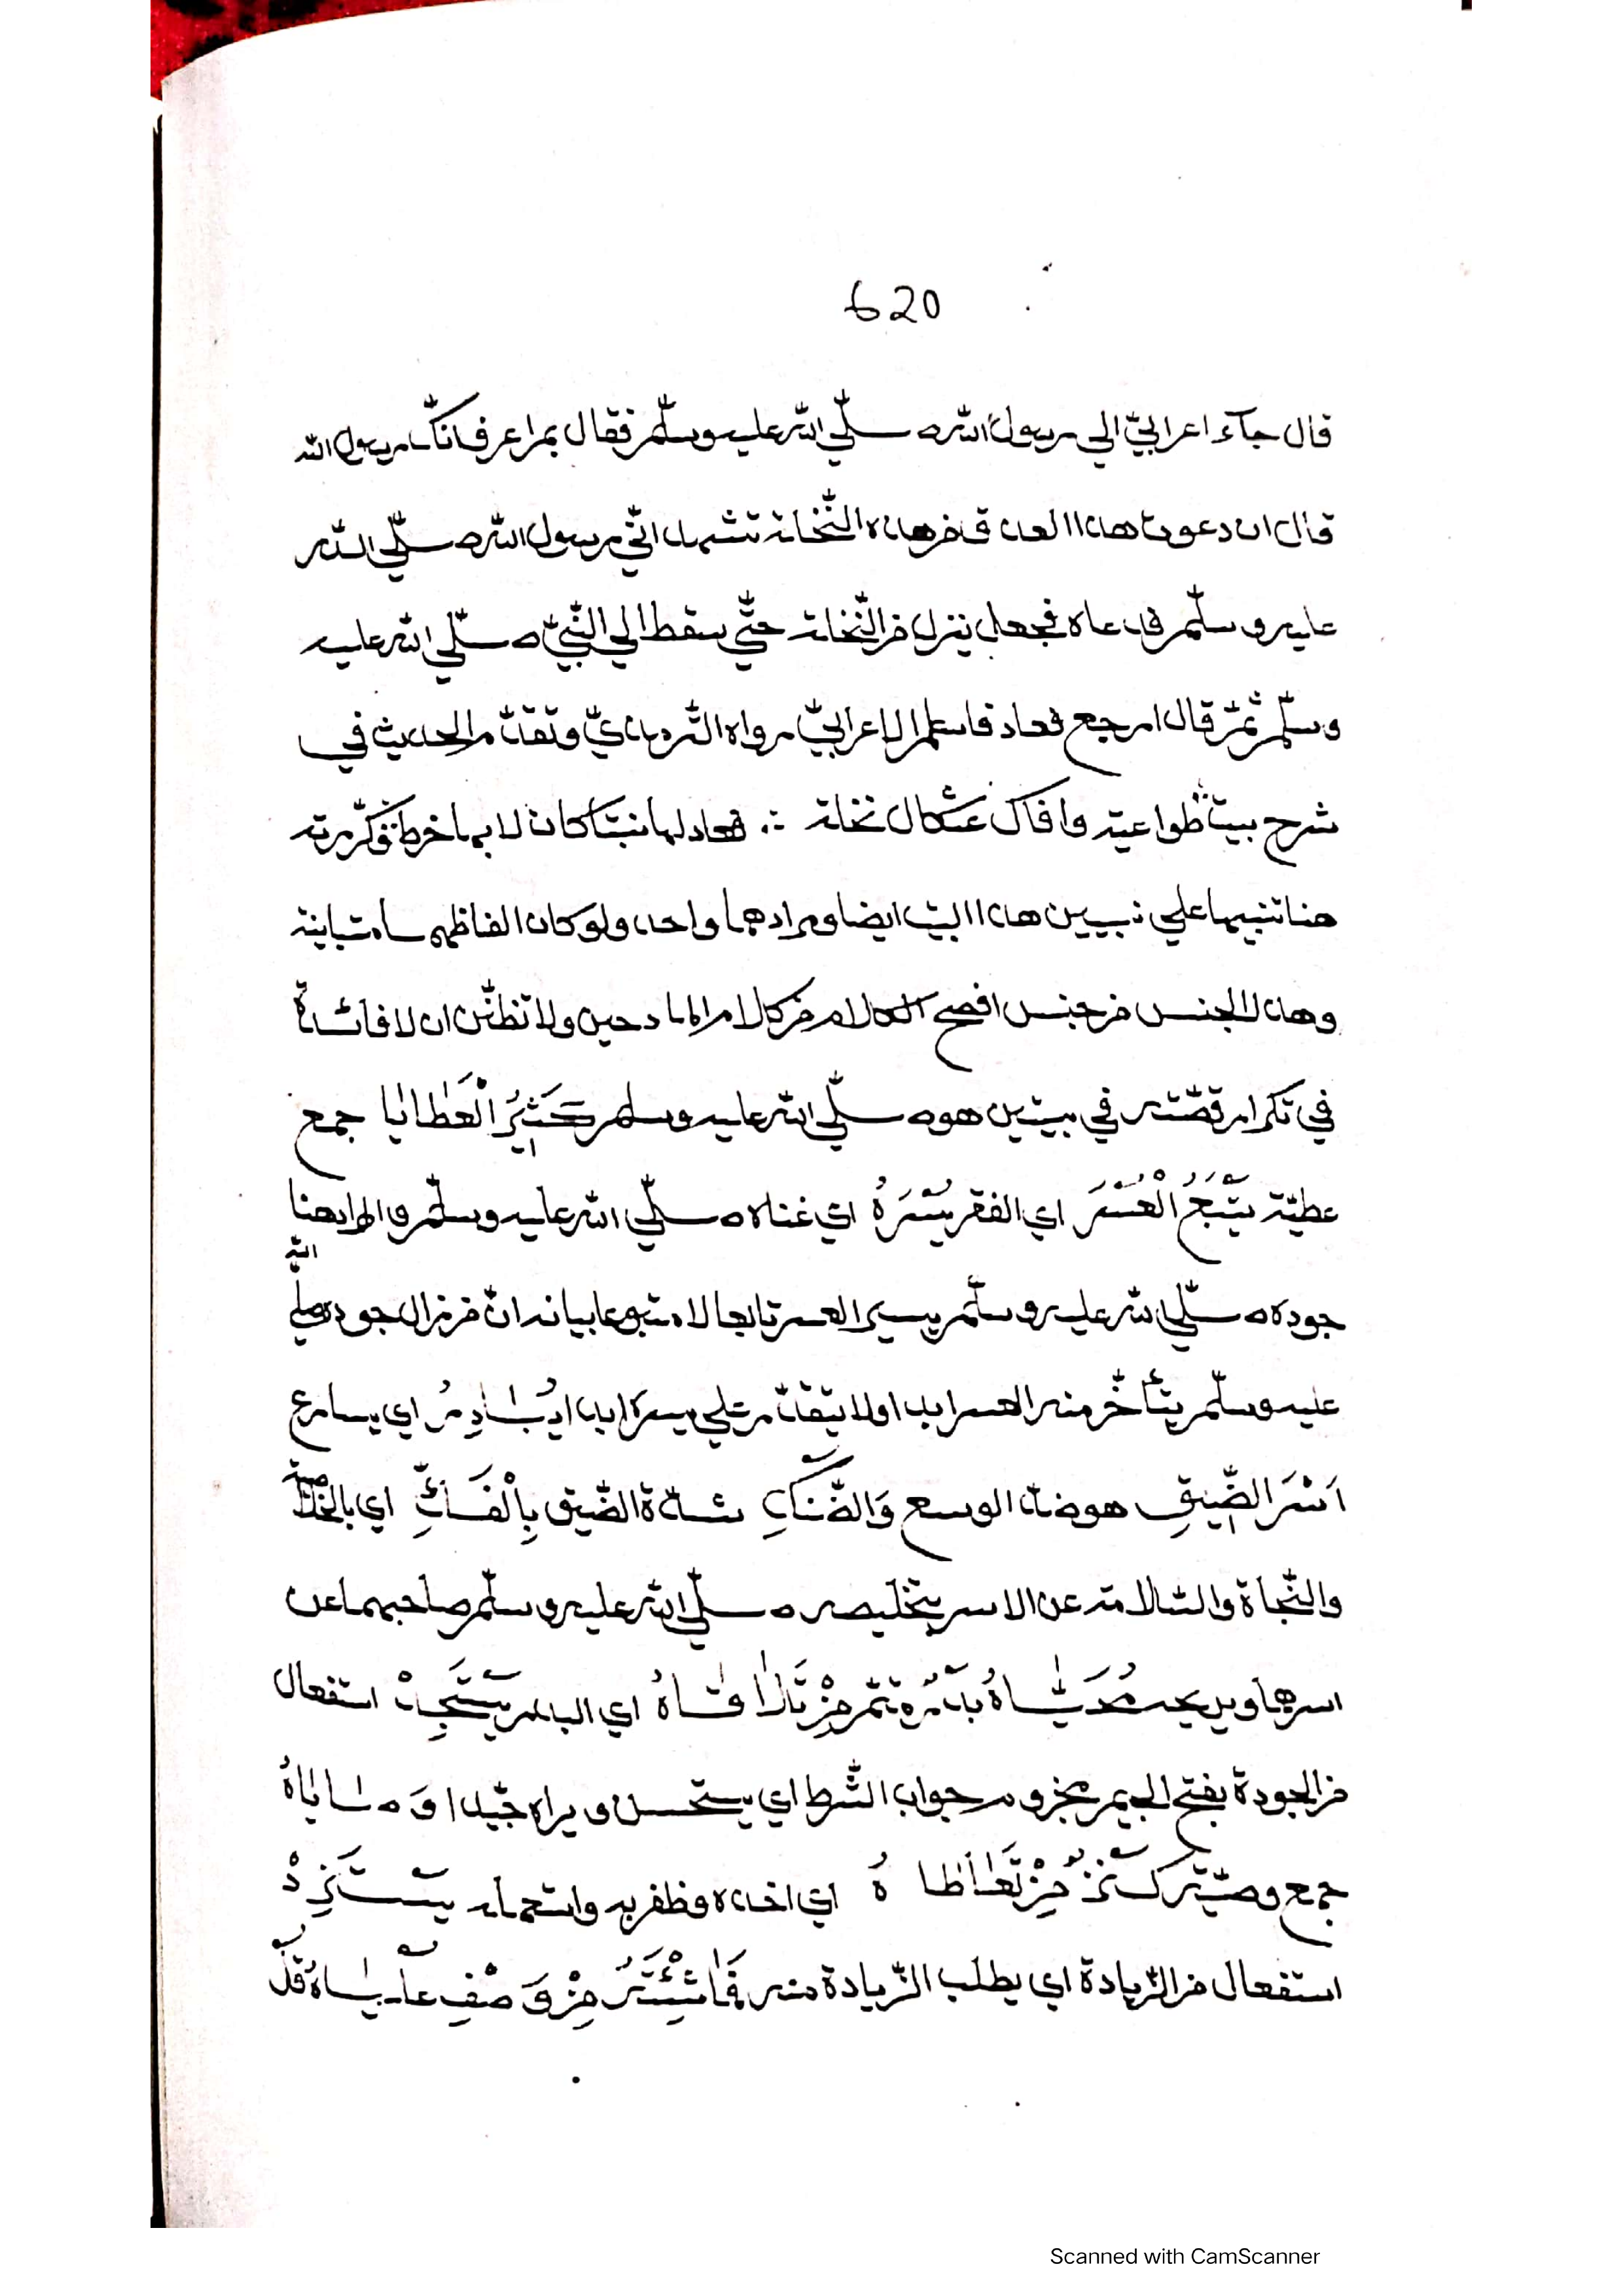 620
قال جآء اعرابيّ الي رسول الله صلّي الله عليه وسلّم فقال بم اعرف انّك رسول الله
قال ان دعوت هذا العذق من هذه النّخلة تشهد انّي رسول الله صلّي الله
عليه وسلّم فدعاه فجعل ينزل من النّخلة حتّي سقط الي النّبيّ صلّي الله عليه
وسلّم ثمّ قال ارجع فعاد فاسلم الاعرابيّ رواه التّرمذيّ وتقدّم الحديث في
شرح بيت طواعية وافاك عثكال نخلة ∴ فعاد لها نبتا كان لابها خرط فكرّرته
هنا تنبيها علي تبيين هذا البيت ايضا ومرادهما واحد ولو كان الفاظهما متباينة
وهذا الجنس من جنس افصح الكلام من كلام المادحين ولا تظنّن ان لا فائدة
في تكرار قصّته في بيتين هو صلّي الله عليه وسلم كَثِيرُ الْعَطَايَا جمع
عطيّة يَتْبَعُ الْعُسْرَ اي الفقر يُسْرُهُ اي غناه صلّي الله عليه وسلّم والمراد هنا
جوده صلّي الله عليه وسلّم يسير العسر تابعا لا متبوعا بيانه انّ من نزال جوده صلّي الله
عليه وسلّم يتأخّر منه العسر ابدا ولا يتقدّم علي يسره ابدا يُبَادِرُ اي يسارع
اَسْرَ الضِّيقِ هو ضدّ الوسع وَالضَّنْكِ شدّة الضّيق بِالْفَكِّ اي بالخلاصة
والنّجاة والسّلامة عن الاسر بتخليصه صلّي الله عليه وسلّم صاحبهما عن
اسرها ويريحه بمرّة تمّ مَنْ اي البلد يَسْتَجِدْ استفعال
من الجودة بفتح الجيم مجزوم جواب الشّرط اي يستحسن ويراه جيّدا وَصَايَاهُ
جمع وصيّة مَنْ تَعَاطَاهُ اي اخذه وظفر به واستعمله يَسْتَزِدْ
استفعال من الزّيادة اي يطلب الزّيادة منه فَمَا شِئْتَ مِنْ وَصْفِ عُلْيَاهُ قُلْ